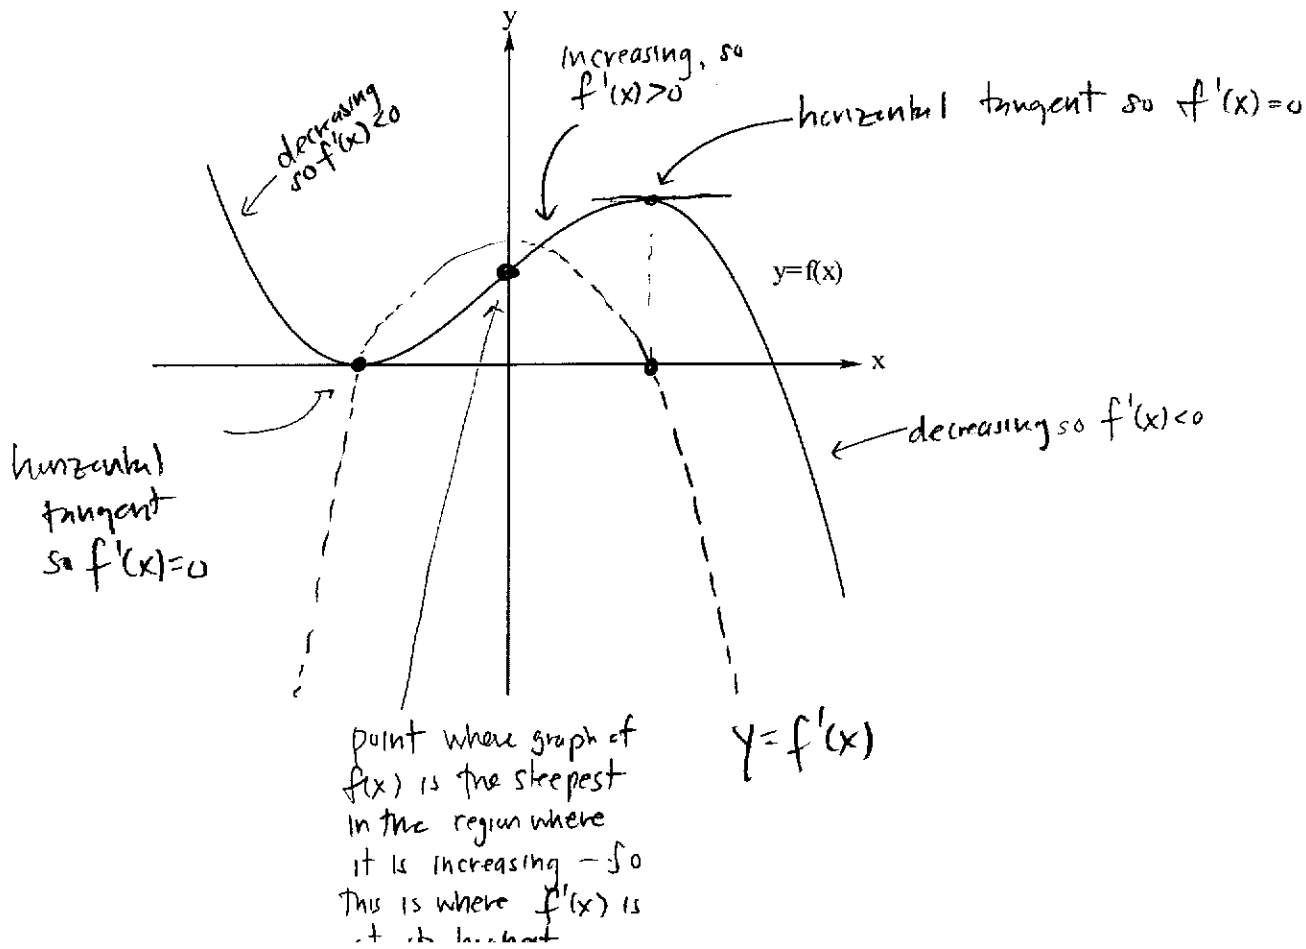 y
increasing, so
f'(x)>0
decreasing
so f'(x)<0
horizontal tangent so f'(x)=0
y=f(x)
x
decreasing so f'(x)<0
horizontal
tangent
so f'(x)=0
point where graph of
f(x) is the steepest
in the region where
it is increasing - so
this is where f'(x) is
at its highest
y=f'(x)